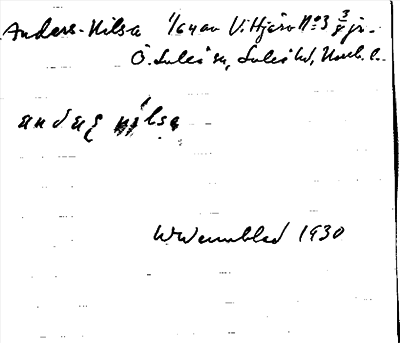 Anders-Nilsa 1/64 av Vittjärv No 3 3/8 jr.
Ö. Luleå sn, Luleå hd, Norrb. l.
andeʃ nilsa
W Wennblad 1930